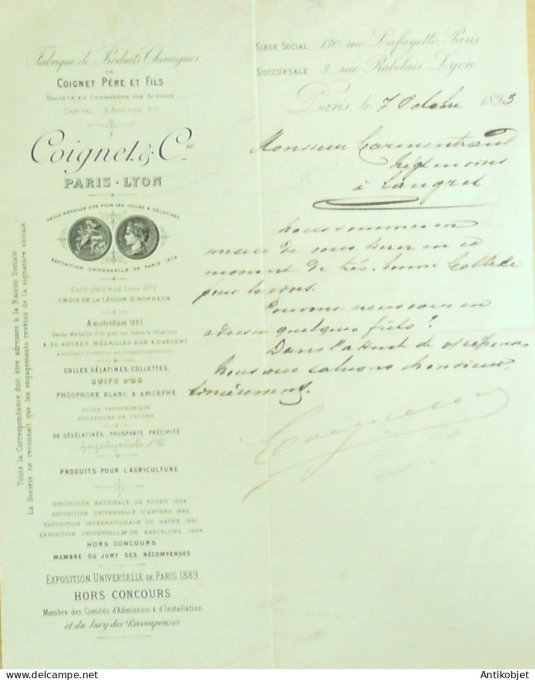 Fabrique de Produits Chimiques
DE
COIGNET PÈRE ET FILS
SOCIÉTÉ EN COMMANDITE PAR ACTIONS
Coignet & Cie
PARIS - LYON
SEULE MÉDAILLE D'OR POUR LES COLLES & GÉLATINES
EXPOSITION UNIVERSELLE DE PARIS 1878
CROIX DE LA LÉGION D'HONNEUR
Amsterdam 1883
Seule Médaille d'Or pour les Colles & Gélatines
& 30 AUTRES MÉDAILLES D'OR & D'ARGENT
COLLES GÉLATINES, COLLETTES,
SUIFS D'OS
PHOSPHORE BLANC & AMORPHE
ACIDE PHOSPHORIQUE
PHOSPHURE DE CUIVRE
OS DÉGÉLATINÉS, PHOSPHATE PRÉCIPITÉ
PRODUITS POUR L'AGRICULTURE
EXPOSITION NATIONALE DE ROUEN 1884
EXPOSITION UNIVERSELLE D'ANVERS 1885
EXPOSITION INTERNATIONALE DU HAVRE 1887
EXPOSITION UNIVERSELLE DE BARCELONE 1888
HORS CONCOURS
MEMBRE DU JURY DES RÉCOMPENSES
EXPOSITION UNIVERSELLE DE PARIS 1889
HORS CONCOURS
Membre des Comités d'Admission & d'Installation
et du Jury des Récompenses
Toute la Correspondance doit être adressée à la Raison Sociale
La Société ne reconnaît que les engagements revêtus de la signature sociale
SIÈGE SOCIAL 130, rue Lafayette, Paris
SUCCURSALE 3, rue Rabelais, Lyon
Paris, le 7 Octobre 1893
Monsieur
à Langres
Nous sommes en
mesure de vous livrer en ce
moment de très bonne Collette
pour
Pouvons nous vous en
adresser quelques fûts ?
Dans l'attente de vtre réponse
Nous vous saluons Monsieur,
sincèrement.
Antikobjet